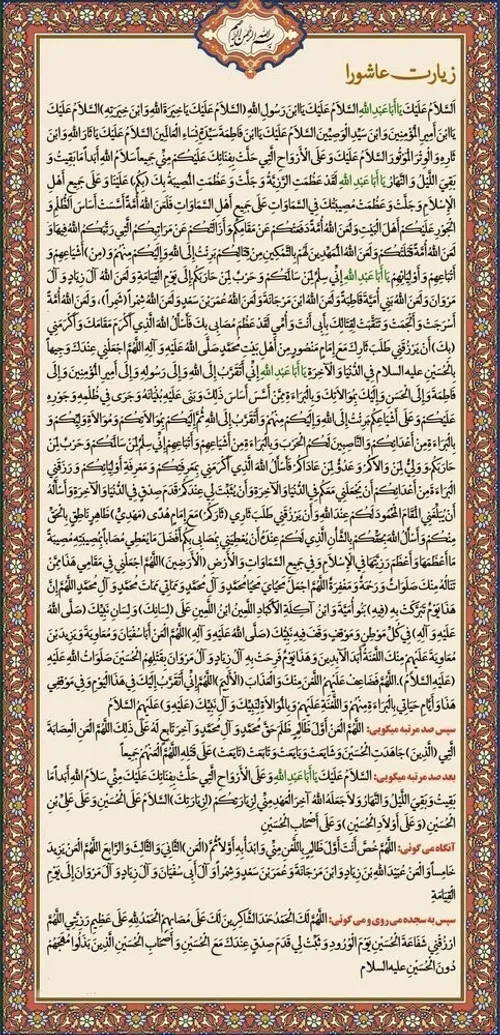 بسم الله الرحمن الرحیم
زیارت عاشورا
اَلسَّلامُ عَلَيْكَ يَا أَبَا عَبْدِ اللهِ السَّلامُ عَلَيْكَ يَا ابْنَ رَسُولِ اللهِ (السَّلامُ عَلَيْكَ يَا خِيَرَةَ اللهِ وَابْنَ خِيَرَتِهِ) السَّلامُ عَلَيْكَ
يَا ابْنَ أَمِيرِ الْمُؤْمِنِينَ وَابْنَ سَيِّدِ الْوَصِيِّينَ السَّلامُ عَلَيْكَ يَا ابْنَ فَاطِمَةَ سَيِّدَةِ نِسَاءِ الْعَالَمِينَ السَّلامُ عَلَيْكَ يَا ثَارَ اللهِ وَابْنَ
ثَارِهِ وَالْوِتْرَ الْمَوْتُورَ السَّلامُ عَلَيْكَ وَعَلَى الْأَرْوَاحِ الَّتِي حَلَّتْ بِفِنَائِكَ عَلَيْكُمْ مِنِّي جَمِيعاً سَلامُ اللهِ أَبَداً مَا بَقِيتُ وَ
بَقِيَ اللَّيْلُ وَ النَّهَارُ يَا أَبَا عَبْدِ اللهِ لَقَدْ عَظُمَتِ الرَّزِيَّةُ وَ جَلَّتْ وَ عَظُمَتِ الْمُصِيبَةُ بِكَ (بِكُمْ) عَلَيْنَا وَ عَلَى جَمِيعِ أَهْلِ
الْإِسْلامِ وَ جَلَّتْ وَ عَظُمَتْ مُصِيبَتُكَ فِي السَّمَاوَاتِ عَلَى جَمِيعِ أَهْلِ السَّمَاوَاتِ فَلَعَنَ اللهُ أُمَّةً أَسَّسَتْ أَسَاسَ الظُّلْمِ وَ
الْجَوْرِ عَلَيْكُمْ أَهْلَ الْبَيْتِ وَ لَعَنَ اللهُ أُمَّةً دَفَعَتْكُمْ عَنْ مَقَامِكُمْ وَ أَزَالَتْكُمْ عَنْ مَرَاتِبِكُمُ الَّتِي رَتَّبَكُمُ اللهُ فِيهَا وَ
لَعَنَ اللهُ أُمَّةً قَتَلَتْكُمْ وَ لَعَنَ اللهُ الْمُمَهِّدِينَ لَهُمْ بِالتَّمْكِينِ مِنْ قِتَالِكُمْ بَرِئْتُ إِلَى اللهِ وَ إِلَيْكُمْ مِنْهُمْ وَ (مِنْ) أَشْيَاعِهِمْ وَ
أَتْبَاعِهِمْ وَ أَوْلِيَائِهِمْ يَا أَبَا عَبْدِ اللهِ إِنِّي سِلْمٌ لِمَنْ سَالَمَكُمْ وَ حَرْبٌ لِمَنْ حَارَبَكُمْ إِلَى يَوْمِ الْقِيَامَةِ وَ لَعَنَ اللهُ آلَ زِيَادٍ وَ آلَ
مَرْوَانَ وَ لَعَنَ اللهُ بَنِي أُمَيَّةَ قَاطِبَةً وَ لَعَنَ اللهُ ابْنَ مَرْجَانَةَ وَ لَعَنَ اللهُ عُمَرَ بْنَ سَعْدٍ وَ لَعَنَ اللهُ شِمْراً (شَمِراً)، وَ لَعَنَ اللهُ أُمَّةً
أَسْرَجَتْ وَ أَلْجَمَتْ وَ تَنَقَّبَتْ لِقِتَالِكَ بِأَبِي أَنْتَ وَ أُمِّي لَقَدْ عَظُمَ مُصَابِي بِكَ فَأَسْأَلُ اللهَ الَّذِي أَكْرَمَ مَقَامَكَ وَ أَكْرَمَنِي
(بِكَ) أَنْ يَرْزُقَنِي طَلَبَ ثَارِكَ مَعَ إِمَامٍ مَنْصُورٍ مِنْ أَهْلِ بَيْتِ مُحَمَّدٍ صَلَّى اللهُ عَلَيْهِ وَ آلِهِ اللَّهُمَّ اجْعَلْنِي عِنْدَكَ وَجِيهاً
بِالْحُسَيْنِ عليه السلام فِي الدُّنْيَا وَ الْآخِرَةِ يَا أَبَا عَبْدِ اللهِ إِنِّي أَتَقَرَّبُ إِلَى اللهِ وَ إِلَى رَسُولِهِ وَ إِلَى أَمِيرِ الْمُؤْمِنِينَ وَ إِلَى
فَاطِمَةَ وَ إِلَى الْحَسَنِ وَ إِلَيْكَ بِمُوَالاتِكَ وَ بِالْبَرَاءَةِ مِمَّنْ أَسَّسَ أَسَاسَ ذَلِكَ وَ بَنَى عَلَيْهِ بُنْيَانَهُ وَ جَرَى فِي ظُلْمِهِ وَ جَوْرِهِ
عَلَيْكُمْ وَ عَلَى أَشْيَاعِكُمْ بَرِئْتُ إِلَى اللهِ وَ إِلَيْكُمْ مِنْهُمْ وَ أَتَقَرَّبُ إِلَى اللهِ ثُمَّ إِلَيْكُمْ بِمُوَالاتِكُمْ وَ مُوَالاةِ وَلِيِّكُمْ وَ
بِالْبَرَاءَةِ مِنْ أَعْدَائِكُمْ وَ النَّاصِبِينَ لَكُمُ الْحَرْبَ وَ بِالْبَرَاءَةِ مِنْ أَشْيَاعِهِمْ وَ أَتْبَاعِهِمْ إِنِّي سِلْمٌ لِمَنْ سَالَمَكُمْ وَ حَرْبٌ لِمَنْ
حَارَبَكُمْ وَ وَلِيٌّ لِمَنْ وَالاكُمْ وَ عَدُوٌّ لِمَنْ عَادَاكُمْ فَأَسْأَلُ اللهَ الَّذِي أَكْرَمَنِي بِمَعْرِفَتِكُمْ وَ مَعْرِفَةِ أَوْلِيَائِكُمْ وَ رَزَقَنِي
الْبَرَاءَةَ مِنْ أَعْدَائِكُمْ أَنْ يَجْعَلَنِي مَعَكُمْ فِي الدُّنْيَا وَ الْآخِرَةِ وَ أَنْ يُثَبِّتَ لِي عِنْدَكُمْ قَدَمَ صِدْقٍ فِي الدُّنْيَا وَ الْآخِرَةِ وَ أَسْأَلُهُ
أَنْ يُبَلِّغَنِي الْمَقَامَ الْمَحْمُودَ لَكُمْ عِنْدَ اللهِ وَ أَنْ يَرْزُقَنِي طَلَبَ ثَارِي (ثَارِكُمْ) مَعَ إِمَامِ هُدًى (مَهْدِيٍّ) ظَاهِرٍ نَاطِقٍ بِالْحَقِّ
مِنْكُمْ وَ أَسْأَلُ اللهَ بِحَقِّكُمْ وَ بِالشَّأْنِ الَّذِي لَكُمْ عِنْدَهُ أَنْ يُعْطِيَنِي بِمُصَابِي بِكُمْ أَفْضَلَ مَا يُعْطِي مُصَاباً بِمُصِيبَتِهِ مُصِيبَةً
مَا أَعْظَمَهَا وَ أَعْظَمَ رَزِيَّتَهَا فِي الْإِسْلامِ وَ فِي جَمِيعِ السَّمَاوَاتِ وَ الْأَرْضِ (الْأَرَضِينَ) اللَّهُمَّ اجْعَلْنِي فِي مَقَامِي هَذَا مِمَّنْ
تَنَالُهُ مِنْكَ صَلَوَاتٌ وَ رَحْمَةٌ وَ مَغْفِرَةٌ اللَّهُمَّ اجْعَلْ مَحْيَايَ مَحْيَا مُحَمَّدٍ وَ آلِ مُحَمَّدٍ وَ مَمَاتِي مَمَاتَ مُحَمَّدٍ وَ آلِ مُحَمَّدٍ اللَّهُمَّ إِنَّ
هَذَا يَوْمٌ تَبَرَّكَتْ بِهِ (فِيهِ) بَنُو أُمَيَّةَ وَ ابْنُ آكِلَةِ الْأَكْبَادِ اللَّعِينُ ابْنُ اللَّعِينِ عَلَى (لِسَانِكَ) وَ لِسَانِ نَبِيِّكَ (صَلَّى اللهُ
عَلَيْهِ وَ آلِهِ) فِي كُلِّ مَوْطِنٍ وَ مَوْقِفٍ وَقَفَ فِيهِ نَبِيُّكَ (صَلَّى اللهُ عَلَيْهِ وَ آلِهِ) اللَّهُمَّ الْعَنْ أَبَا سُفْيَانَ وَ مُعَاوِيَةَ وَ يَزِيدَ بْنَ
مُعَاوِيَةَ عَلَيْهِمْ مِنْكَ اللَّعْنَةُ أَبَدَ الْآبِدِينَ وَ هَذَا يَوْمٌ فَرِحَتْ بِهِ آلُ زِيَادٍ وَ آلُ مَرْوَانَ بِقَتْلِهِمُ الْحُسَيْنَ صَلَوَاتُ اللهِ عَلَيْهِ
(عَلَيْهِ السَّلامُ). اللَّهُمَّ فَضَاعِفْ عَلَيْهِمُ اللَّعْنَ مِنْكَ وَ الْعَذَابَ (الْأَلِيمَ) اللَّهُمَّ إِنِّي أَتَقَرَّبُ إِلَيْكَ فِي هَذَا الْيَوْمِ وَ فِي مَوْقِفِي
هَذَا وَ أَيَّامِ حَيَاتِي بِالْبَرَاءَةِ مِنْهُمْ وَ اللَّعْنَةِ عَلَيْهِمْ وَ بِالْمُوَالاةِ لِنَبِيِّكَ وَ آلِ نَبِيِّكَ (عَلَيْهِ وَ) عَلَيْهِمُ السَّلامُ
سپس صد مرتبه میگویی: اللَّهُمَّ الْعَنْ أَوَّلَ ظَالِمٍ ظَلَمَ حَقَّ مُحَمَّدٍ وَ آلِ مُحَمَّدٍ وَ آخِرَ تَابِعٍ لَهُ عَلَى ذَلِكَ اللَّهُمَّ الْعَنِ الْعِصَابَةَ
الَّتِي (الَّذِينَ) جَاهَدَتِ الْحُسَيْنَ وَ شَايَعَتْ وَ بَايَعَتْ وَ تَابَعَتْ (تَايَعَتْ) عَلَى قَتْلِهِ اللَّهُمَّ الْعَنْهُمْ جَمِيعاً
بعد صد مرتبه میگویی: السَّلامُ عَلَيْكَ يَا أَبَا عَبْدِ اللهِ وَ عَلَى الْأَرْوَاحِ الَّتِي حَلَّتْ بِفِنَائِكَ عَلَيْكَ مِنِّي سَلامُ اللهِ أَبَداً مَا
بَقِيتُ وَ بَقِيَ اللَّيْلُ وَ النَّهَارُ وَ لا جَعَلَهُ اللهُ آخِرَ الْعَهْدِ مِنِّي لِزِيَارَتِكُمْ (لِزِيَارَتِكَ) السَّلامُ عَلَى الْحُسَيْنِ وَ عَلَى عَلِيِّ بْنِ
الْحُسَيْنِ (وَ عَلَى أَوْلادِ الْحُسَيْنِ) وَ عَلَى أَصْحَابِ الْحُسَيْنِ
آنگاه می گوئی: اللَّهُمَّ خُصَّ أَنْتَ أَوَّلَ ظَالِمٍ بِاللَّعْنِ مِنِّي وَ ابْدَأْ بِهِ أَوَّلاً ثُمَّ (الْعَنِ) الثَّانِيَ وَ الثَّالِثَ وَ الرَّابِعَ اللَّهُمَّ الْعَنْ يَزِيدَ
خَامِساً وَ الْعَنْ عُبَيْدَ اللهِ بْنَ زِيَادٍ وَ ابْنَ مَرْجَانَةَ وَ عُمَرَ بْنَ سَعْدٍ وَ شِمْراً وَ آلَ أَبِي سُفْيَانَ وَ آلَ زِيَادٍ وَ آلَ مَرْوَانَ إِلَى يَوْمِ
الْقِيَامَةِ
سپس به سجده می روی و می گوئی: اللَّهُمَّ لَكَ الْحَمْدُ حَمْدَ الشَّاكِرِينَ لَكَ عَلَى مُصَابِهِمْ الْحَمْدُ لِلَّهِ عَلَى عَظِيمِ رَزِيَّتِي اللَّهُمَّ
ارْزُقْنِي شَفَاعَةَ الْحُسَيْنِ يَوْمَ الْوُرُودِ وَ ثَبِّتْ لِي قَدَمَ صِدْقٍ عِنْدَكَ مَعَ الْحُسَيْنِ وَ أَصْحَابِ الْحُسَيْنِ الَّذِينَ بَذَلُوا مُهَجَهُمْ
دُونَ الْحُسَيْنِ عليه السلام